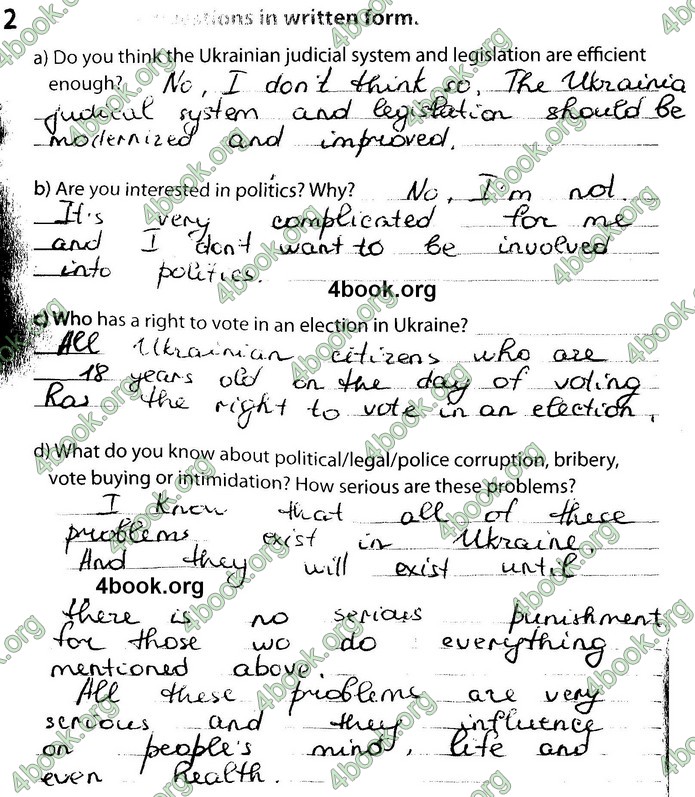 2 questions in written form.
a) Do you think the Ukrainian judicial system and legislation are efficient
enough? No, I don't think so. The Ukrainia
judical system and legislation should be
modernized and improved.
b) Are you interested in politics? Why? No, I'm not.
It's very complicated for me
and I don't want to be involved
into politics.
4book.org
c) Who has a right to vote in an election in Ukraine?
All Ukrainian citizens who are
18 years old on the day of voting
has the right to vote in an election.
d) What do you know about political/legal/police corruption, bribery,
vote buying or intimidation? How serious are these problems?
I know that all of these
problems exist in Ukraine.
And they will exist until
4book.org
there is no serious punishment
for those wo do everything
mentioned above.
All these problems are very
serious and they influence
on people's mind, life and
even health.